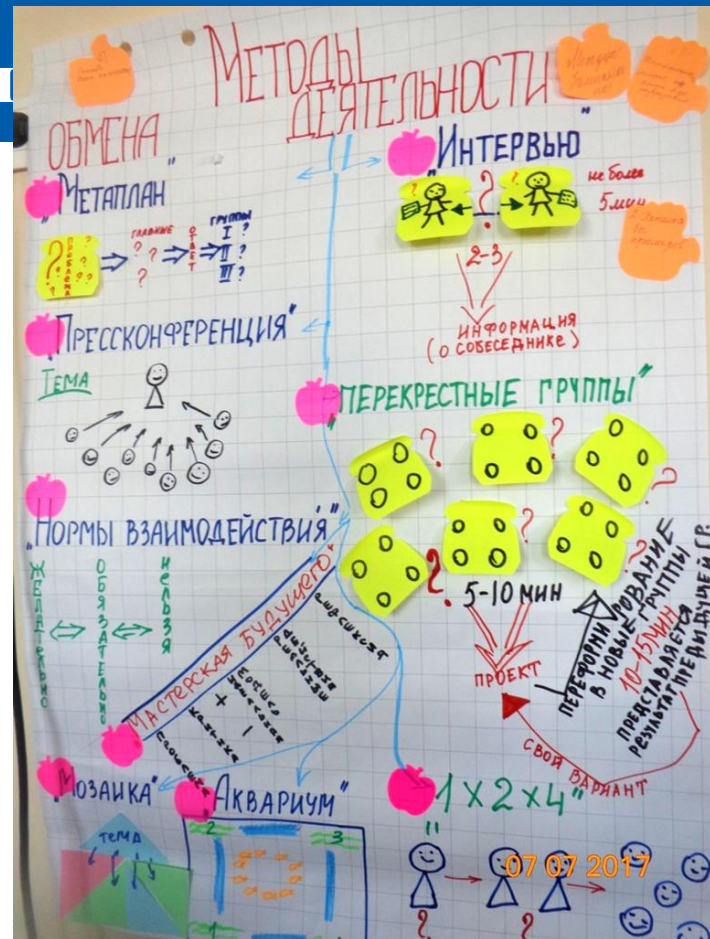 МЕТОДЫ
ОБМЕНА ДЕЯТЕЛЬНОСТИ
"МЕТАПЛАН"
ПРОБЛЕМА
ГЛАВНЫЕ
ОТВЕТ
ГРУППЫ
I ?
II ?
III ?
"ПРЕССКОНФЕРЕНЦИЯ"
ТЕМА
"НОРМЫ ВЗАИМОДЕЙСТВИЯ"
ЖЕЛАТЕЛЬНО
ОБЯЗАТЕЛЬНО
НЕЛЬЗЯ
МАСТЕРСКАЯ БУДУЩЕГО"
"МОЗАИКА"
ТЕМА
"АКВАРИУМ"
2
3
"ИНТЕРВЬЮ"
не более
5 мин
2-3
ИНФОРМАЦИЯ
(О СОБЕСЕДНИКЕ)
"ПЕРЕКРЕСТНЫЕ ГРУППЫ"
5-10 МИН
ПРОЕКТ
ПЕРЕФОРМИРОВАНИЕ
В НОВЫЕ ГРУППЫ
10-15МИН
ПРЕДСТАВЛЯЕТСЯ
РЕЗУЛЬТАТ ПРЕДЫДУЩЕЙ ГР.
СВОЙ ВАРИАНТ
"1 X 2 X 4"
07 07 2017